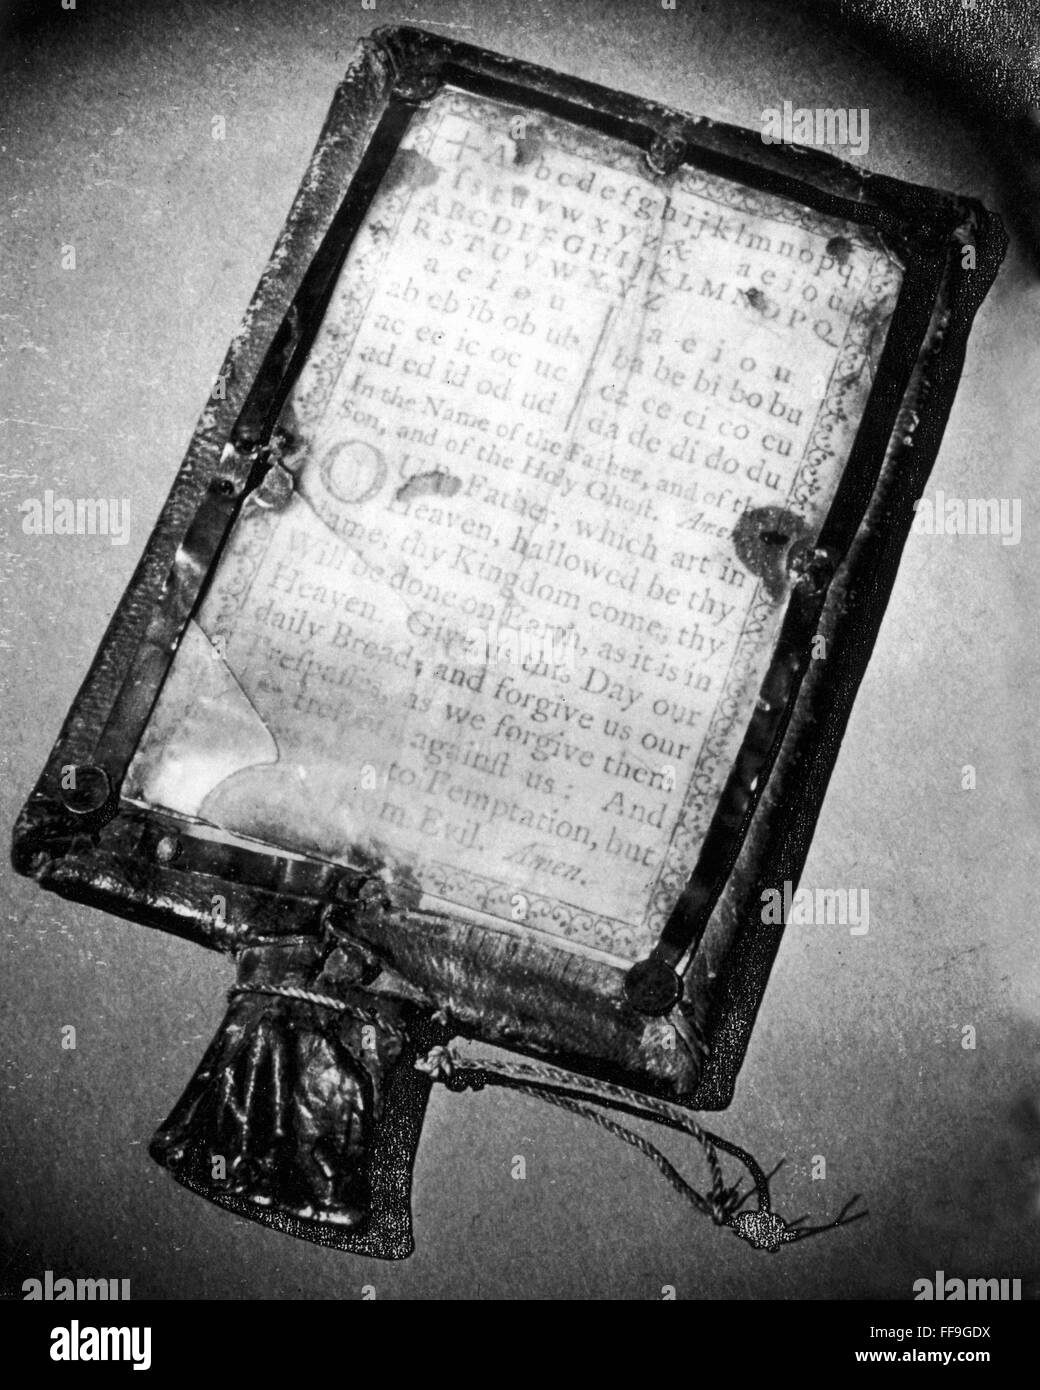 +Aabcdefghijklmnopq
rſstuvwxyz& aeiou
ABCDEFGHIJKLMNOPQ
RSTUVWXYZ
a e i o u a e i o u
ab eb ib ob ub ba be bi bo bu
ac ec ic oc uc ca ce ci co cu
ad ed id od ud da de di do du
In the Name of the Father, and of the
Son, and of the Holy Ghoſt. Amen.
OUR Father, which art in
Heaven, hallowed be thy
ame; thy Kingdom come, thy
Will be done on Earth, as it is in
Heaven. Give us this Day our
daily Bread; and forgive us our
Treſpaſſes, as we forgive them
treſpaſ againſt us: And
to Temptation, but
from Evil. Amen.
alamy
alamy
FF9GDX
www.alamy.com